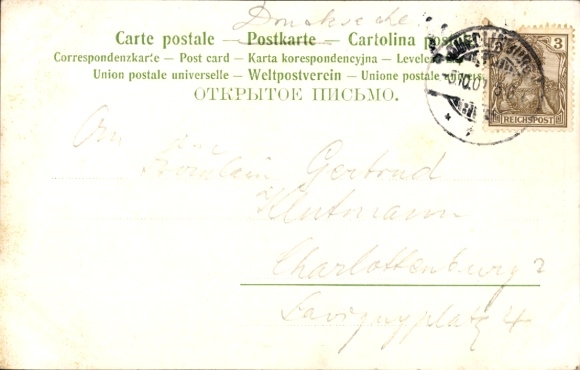 Drucksache
Carte postale — Postkarte — Cartolina postale
Correspondenzkarte — Post card — Karta korespondencyjna — Levelez
Union postale universelle — Weltpostverein — Unione postale univers
ОТКРЫТОЕ ПИСЬМО.
3
REICHSPOST
An
Fräulein Gertrud
Klutmann
Charlottenburg 2
Savignyplatz 4